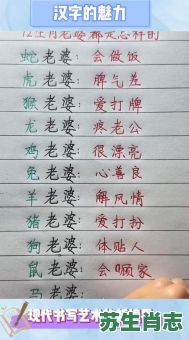 汉字的魅力
12生肖老婆都是怎样的
蛇老婆：会做饭
虎老婆：脾气差
猴老婆：爱打牌
龙老婆：疼老公
鸡老婆：很漂亮
兔老婆：心善良
羊老婆：解风情
猪老婆：爱打扮
狗老婆：体贴人
鼠老婆：会顾家
马老婆：
现代书写艺术
苏生肖志